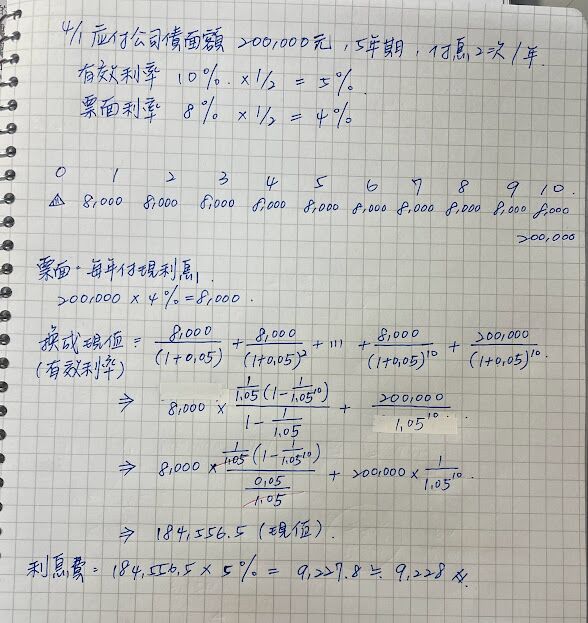 4/1 应付公司債面額 200,000元，5年期，付息2次/年
有效利率 10% × 1/2 = 5%
票面利率 8% × 1/2 = 4%
0 1 2 3 4 5 6 7 8 9 10
△ 8,000 8,000 8,000 8,000 8,000 8,000 8,000 8,000 8,000 8,000
200,000
票面：每年付現利息
200,000 × 4% = 8,000
換成現值 = 8,000/(1+0.05) + 8,000/(1+0.05)² + ... + 8,000/(1+0.05)¹⁰ + 200,000/(1+0.05)¹⁰
(有效利率)
⇒ 8,000 × (1/1.05 (1 - 1/1.05¹⁰))/(1 - 1/1.05) + 200,000/1.05¹⁰
⇒ 8,000 × (1/1.05 (1 - 1/1.05¹⁰))/(0.05/1.05) + 200,000 × 1/1.05¹⁰
⇒ 184,556.5 (現值)
利息費 = 184,556.5 × 5% = 9,227.8 ≒ 9,228